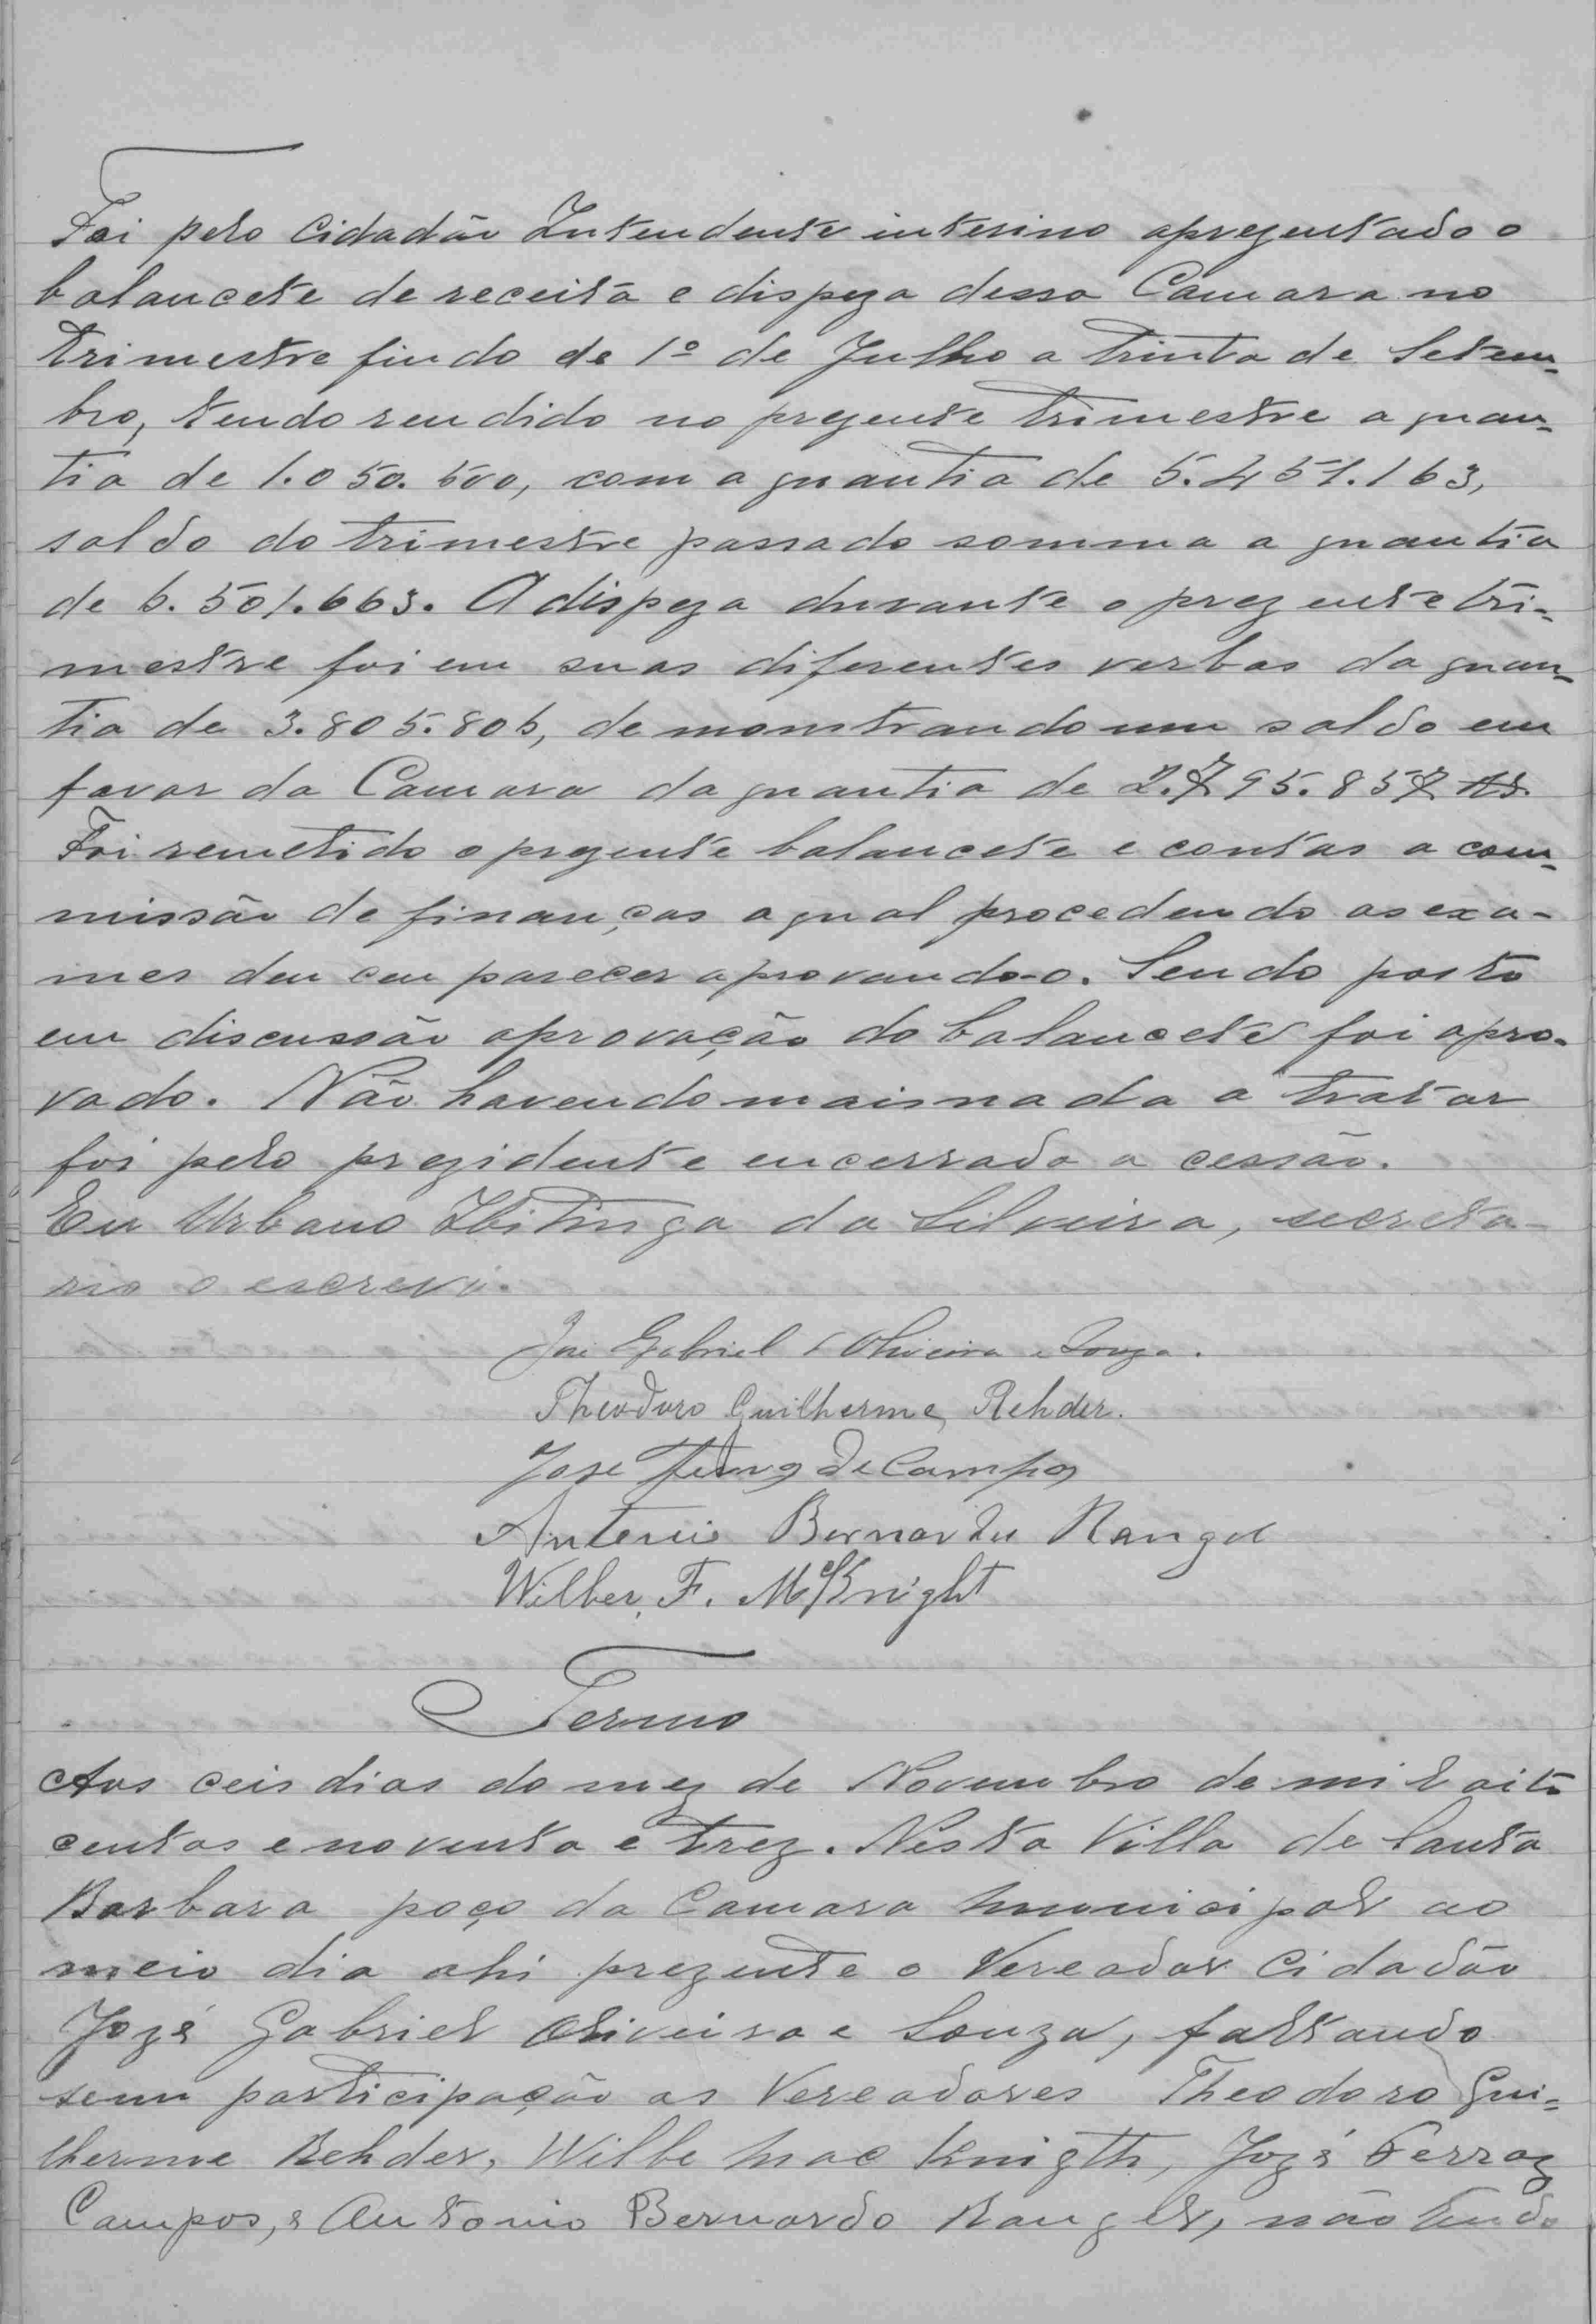 Foi pelo Cidadão Intendente interino aprezentado o
balancete de receita e dispeza dessa Camara no
trimestre findo de 1º de Julho a trinta de Setem-
bro, tendo rendido no prezente trimestre a quan-
tia de 1.050.500, com a quantia de 5.451.163,
saldo do trimestre passado somma a quantia
de 6.501.663. A dispeza durante o prezente tri-
mestre foi em suas diferentes verbas da quan-
tia de 3.805.806, demonstrando um saldo em
favor da Camara da quantia de 2.795.857 rs.
Foi remetido o prezente balancete e contas a com-
missão de finanças a qual procedendo as exa-
mes deu ceu parecer aprovando-o. Sendo posto
em discussão aprovação do balancete foi apro-
vado. Não havendo mais nada a tratar
foi pelo prezidente encerrado a cessão.
Eu Urbano Ibitinga da Silveira, secreta-
rio o escrevi.
José Gabriel d'Oliveira e Souza.
Theodoro Guilherme Rehder.
Jose Ferraz de Campos
Antonio Bernardo Rangel
Wilber F. McKnight
Termo
Aos ceis dias do mez de Novembro de mil oito
centos e noventa e trez. Nesta Villa de Santa
Barbara paço da Camara Municipal ao
meio dia ahi prezente o Vereador Cidadão
Jozé Gabriel Oliveira e Souza, faltando
sem participação os Vereadores Theodoro Gui-
lherme Rehder, Wilbe Mac Knigth, Jozé Ferraz
Campos, e Antonio Bernardo Rangel, não tendo